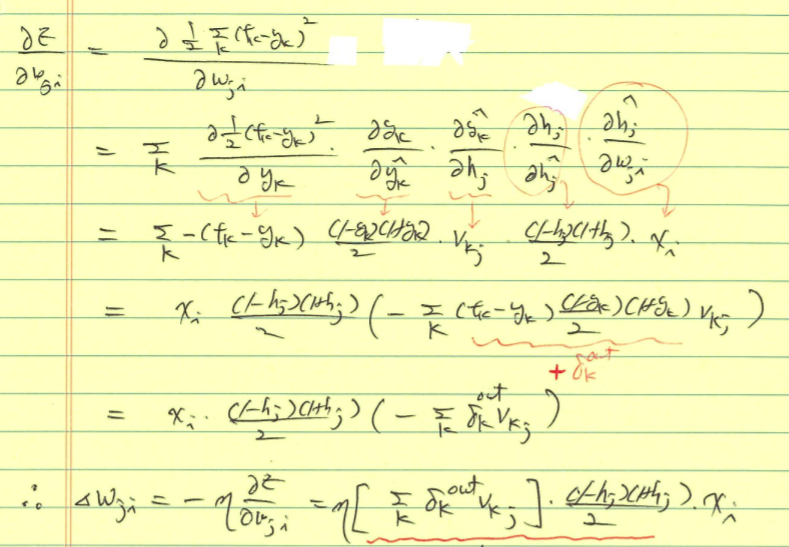 ∂E/∂w_ji = ∂ ½ Σ_k (t_k - y_k)² / ∂w_ji
= Σ_k ∂½(t_k - y_k)²/∂y_k · ∂y_k/∂ŷ_k · ∂ŷ_k/∂h_j · ∂h_j/∂ĥ_j · ∂ĥ_j/∂w_ji
= Σ_k -(t_k - y_k) (1-y_k)(1+y_k)/2 · v_kj · (1-h_j)(1+h_j)/2 · x_i
= x_i (1-h_j)(1+h_j)/2 ( - Σ_k (t_k - y_k) (1-y_k)(1+y_k)/2 v_kj )
+ δ_k^out
= x_i · (1-h_j)(1+h_j)/2 ( - Σ_k δ_k^out v_kj )
∴ Δw_ji = -η ∂E/∂w_ji = η [ Σ_k δ_k^out v_kj ] · (1-h_j)(1+h_j)/2 · x_i